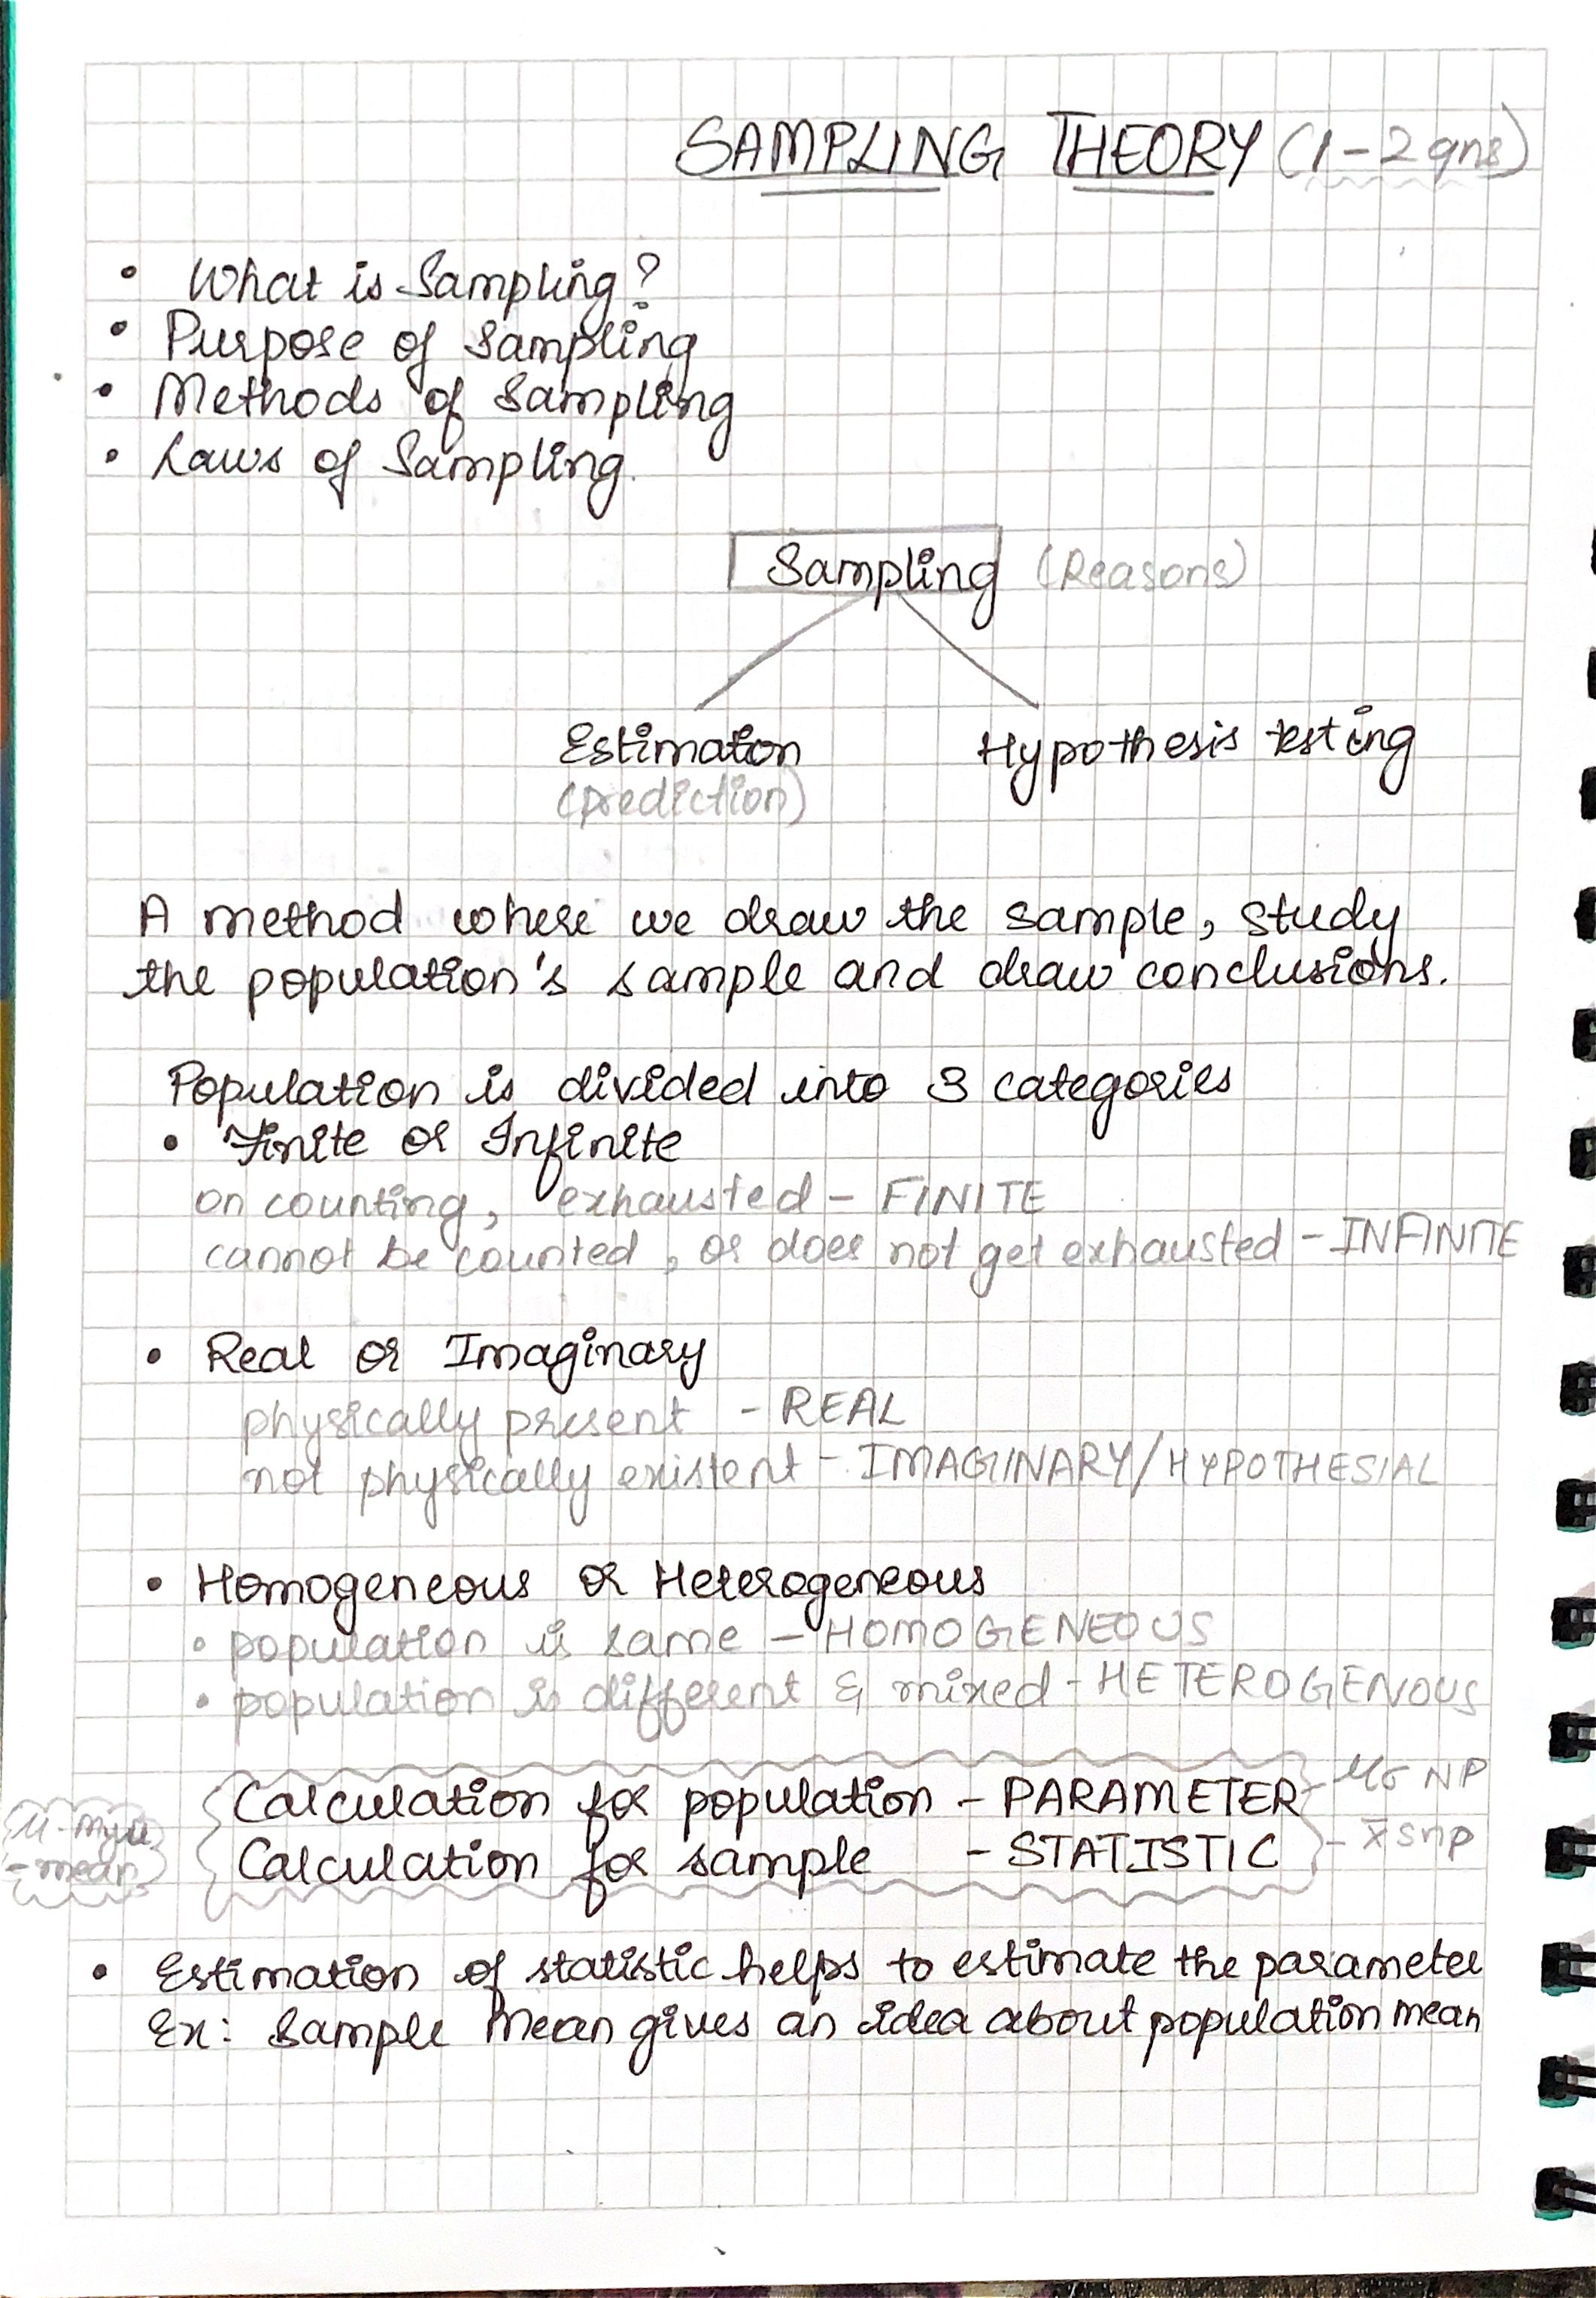 SAMPLING THEORY (1-2 qns)
• What is Sampling?
• Purpose of Sampling
• Methods of Sampling
• Laws of Sampling.
Sampling (Reasons)
Estimation Hypothesis testing
(prediction)
A method where we draw the sample, study
the population's sample and draw conclusions.
Population is divided into 3 categories
• Finite or Infinite
on counting, exhausted - FINITE
cannot be counted, or does not get exhausted - INFINITE
• Real or Imaginary
physically present - REAL
not physically existent - IMAGINARY/HYPOTHESIAL
• Homogeneous or Heterogeneous
• population is same - HOMOGENEOUS
• population is different & mixed - HETEROGENOUS
Calculation for population - PARAMETER - μ σ N P
Calculation for sample - STATISTIC - x̄ s n p
μ - myu
- mean
• Estimation of statistic helps to estimate the parameter
Ex: Sample Mean gives an idea about population mean